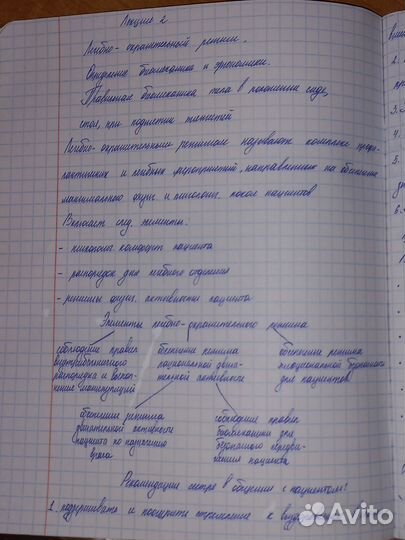 Лекция 2
Лечебно-охранительный режим.
Определение биомеханика и эргономики.
Правильная биомеханика тела в положении сидя,
стоя, при поднятии тяжестей
Лечебно-охранительным режимом называют комплекс профи-
лактических и лечебных мероприятий, направленных на обеспечение
максимально физич и психолог. покоя пациентов
Включает след. элементы:
- психолог комфорт пациента
- распорядок дня лечебного отделения
- режимы физич. активности пациента
Элементы лечебно-охранительного режима
соблюдение правил
внутрибольничного
распорядка и выпол-
нение манипуляций
обеспечение режима
рациональной двига-
тельной активности
обеспечение режима
эмоциональной безопасности
для пациентов
обеспечение режима
двигательной активности
пациента по назначению
врача
соблюдение правил
биомеханики для
безопасного передви-
жения пациента
Рекомендации сестре в общении с пациентом:
1. поддерживать и поощрять стремление к
Avito